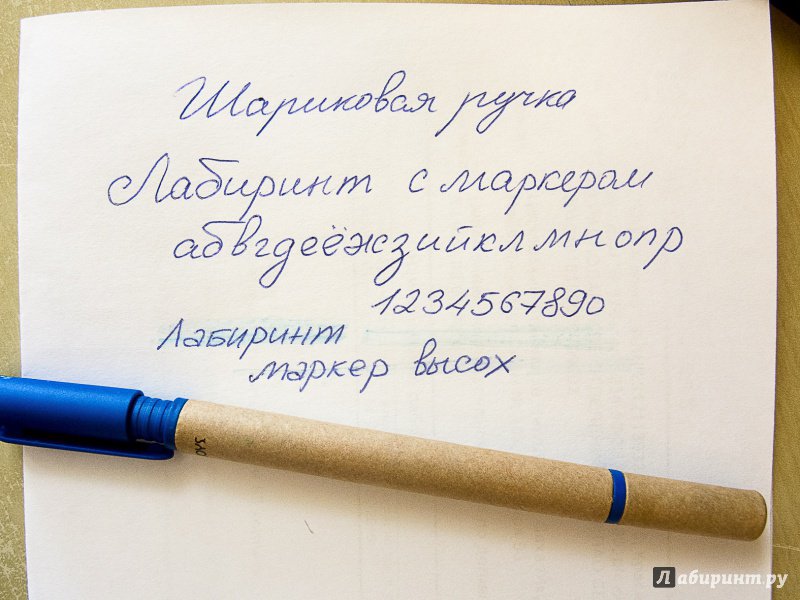 Шариковая ручка
Лабиринт с маркером
абвгдеёжзийклмнопр
1234567890
Лабиринт
маркер высох
Лабиринт.ру